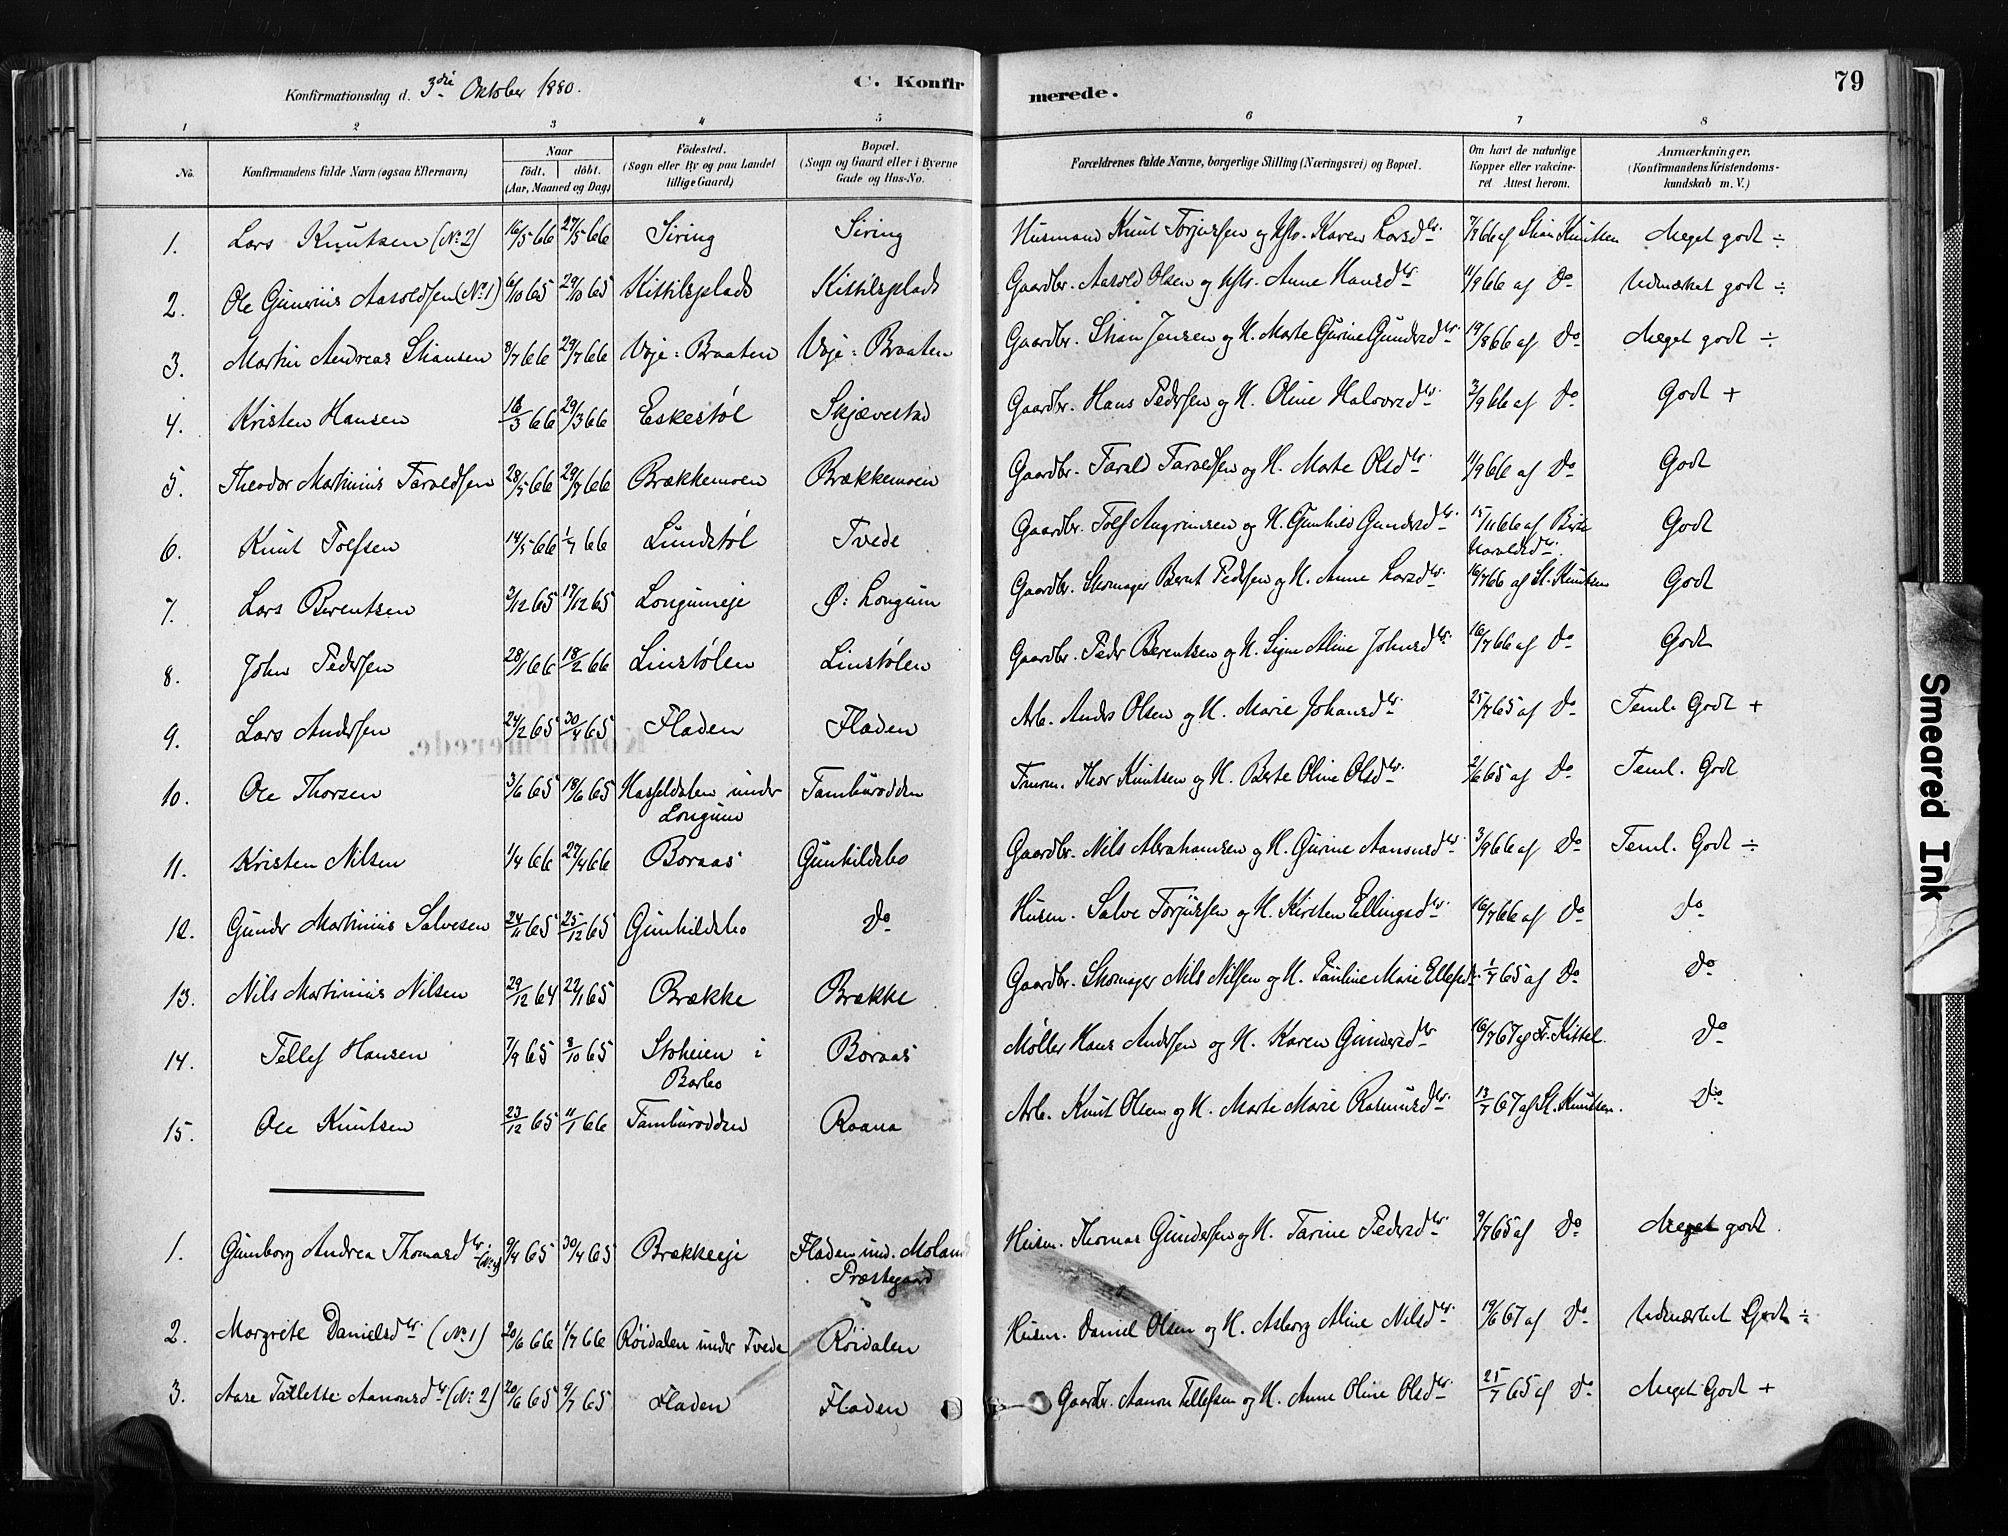 Konfirmationsdag d. 3die Oktober 1880.
C. Konfirmerede.
79
1 2 3 4 5 6 7 8
No. Konfirmandens fulde Navn (ogsaa Efternavn) Naar født, døbt. (Aar, Maaned og Dag) Fødested. (Sogn eller By og paa Landet tillige Gaard) Bopæl. (Sogn og Gaard eller i Byerne Gade og Hus-No. Forældrenes fulde Navne, borgerlige Stilling (Næringsvei) og Bopæl. Om havt de naturlige Kopper eller vakcineret Attest herom. Anmærkninger. (Konfirmandens Kristendomskundskab m. V.)
1. Lars Knutsen (No 2) 16/5 66 27/5 66 Siring Siring Husmand Knut Torjussen og Hstr. Karen Larsdtr. 7/7 66 af Stian Knutsen Meget godt ÷
2. Ole Gunvius Aasoldsen (No 1) 6/10 65 29/10 65 Kittilsplads Kittilsplads Gaardbr. Aasold Olsen og Hstr. Anne Hansdtr 11/9 66 af Do Udmærket godt ÷
3. Martin Andreas Stiansen 8/7 66 29/7 66 Voje: Braaten Voje: Braaten Gaardbr. Stian Jensen og H. Marte Gurine Gundersdtr. 19/8 66 af Do Meget godt ÷
4. Kristen Hansen 16/3 66 29/3 66 Eskestøl Skjævestad Gaardbr. Hans Pedersen og H. Oline Halvorsdtr. 3/9 66 af Do Godt +
5. Theodor Martinius Taraldsen 28/5 66 29/7 66 Brækkemoen Brækkemoen Gaardbr. Tarald Taraldsen og H. Marte Olsdtr. 11/9 66 af Do Godt
6. Knut Tolfsen 14/5 66 1/7 66 Lundstøl Tvede Gaardbr. Tolf Angrimsen og H. Gunhild Gundersdtr. 15/11 66 af Birte
Haraldsdtr. Godt
7. Lars Berentsen 2/12 65 17/12 65 Longumeje Ø: Longum Gaardbr. Skomager Bernt Pedersen og H. Anne Larsdtr. 16/7 66 af St. Knutsen Godt
8. John Pedersen 28/1 66 18/2 66 Linstølen Linstølen Gaardbr. Peder Berentsen og H. Signe Aline Johnsdtr. 16/7 66 af Do Godt
9. Lars Andersen 24/2 65 30/4 65 Fladen Fladen Arb. Anders Olsen og H. Marie Johansdtr. 25/7 65 af Do Teml. Godt +
10. Ole Thorsen 3/6 65 18/6 65 Hasseldalen under
Longum Tamburodden Thor Knutsen og H. Berte Oline Olsdtr. 2/6 65 af Do Teml. Godt
11. Kristen Nilsen 1/4 66 27/4 66 Boraas Gunhildsbo Gaardbr. Nils Abrahamsen og H. Gurine Aanonsdtr. 3/9 66 af Do Teml. Godt ÷
12. Gunder Martinius Salvesen 24/11 65 25/12 65 Gunhildsbo Do Husm. Salve Torjussen og H. Kirsten Ellingsdtr. 16/7 66 af Do Do
13. Nils Martinius Nilsen 29/12 64 22/1 65 Brække Brække Gaardbr. Skomager Nils Nilsen og H. Pauline Marie Ellefsdtr. 1/7 65 af Do Do
14. Tellef Hansen 7/9 65 8/10 65 Stoheien i
Barbo Boraas Møller Hans Andersen og H. Karen Gundersdtr 16/7 67 af Fr. Kittel. Do
15. Ole Knutsen 23/12 65 11/1 66 Tamburodden Raana Arb. Knut Olsen og H. Marte Marie Rasmusdtr. 13/7 67 af St. Knutsen. Do
1. Gunborg Andrea Thomasdtr. 9/4 65 30/4 65 Brækkeeje Fladen und. Molands
Præstegaard Husm. Thomas Gundersen og H. Tarine Pedersdtr. 9/7 65 af Do Meget godt.
2. Margrete Danielsdtr. (No 1) 20/6 66 1/7 66 Røidalen under Tvede Røidalen Husm. Daniel Olsen og H. Asborg Aline Nilsdtr. 19/6 67 af Do Udmærket Godt ÷
3. Aase Tallette Aanonsdtr (No 2) 20/6 65 9/7 65 Fladen Fladen Gaardbr. Aanon Tellefsen og H. Anne Oline Olsdtr. 25/7 65 af Do Meget Godt +
Smeared Ink